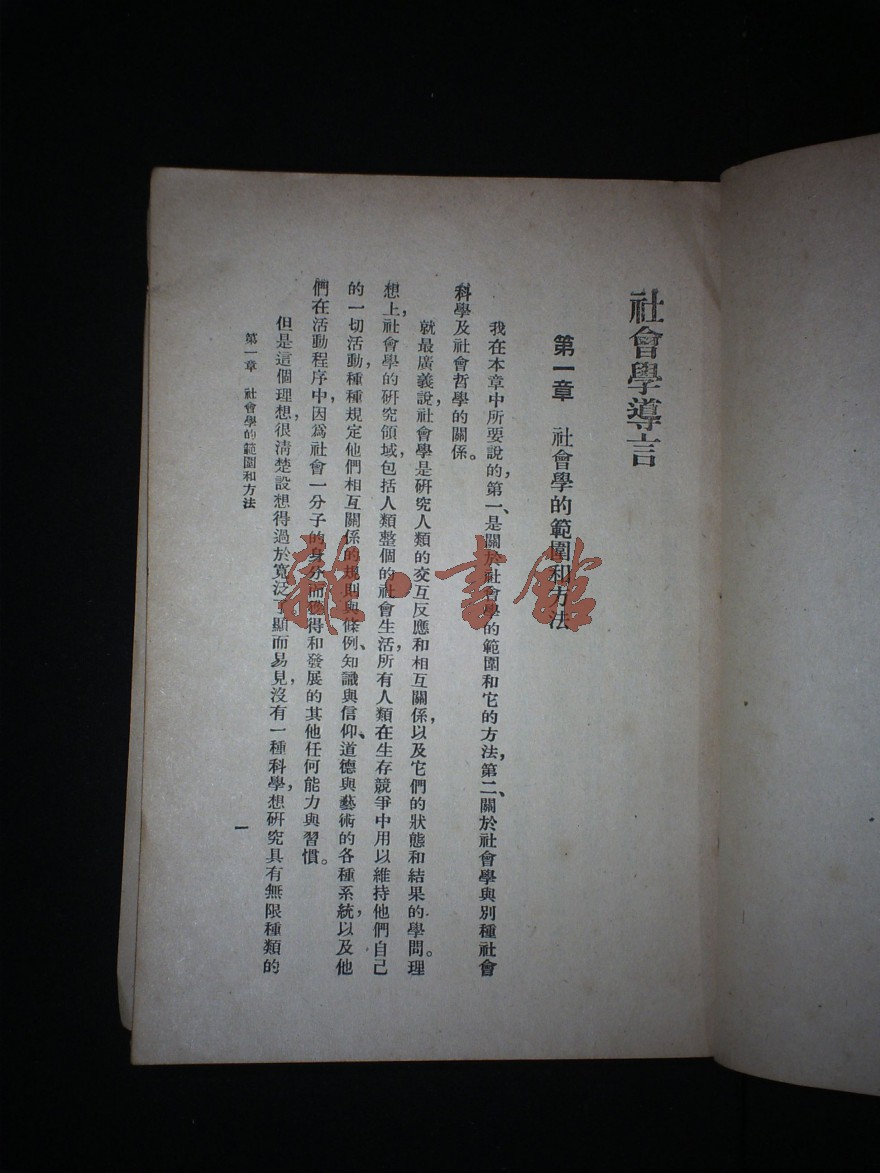 社會學導言
第一章　社會學的範圍和方法
我在本章中所要說的，第一、是關於社會學的範圍和它的方法，第二、關於社會學與別種社會
科學及社會哲學的關係。
就最廣義說，社會學是研究人類的交互反應和相互關係，以及它們的狀態和結果的學問。理
想上，社會學的研究領域，包括人類整個的社會生活，所有人類在生存競爭中用以維持他們自己
的一切活動，種種規定他們相互關係的規則與條例、知識與信仰、道德與藝術的各種系統，以及他
們在活動程序中，因爲社會一分子的身分而獲得和發展的其他任何能力與習慣。
但是這個理想，很淸楚設想得過於寬泛了，顯而易見，沒有一種科學，想研究具有無限種類的
第一章　社會學的範圍和方法
一
雜·書館